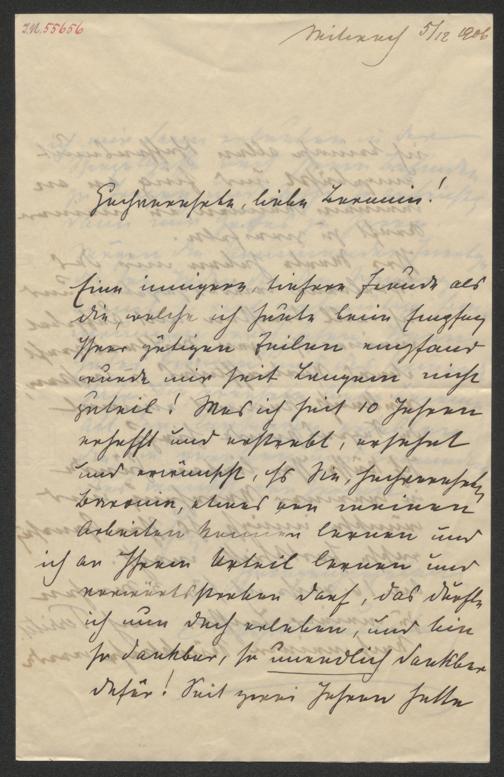 I.N. 55656
Mittwoch 5/12 1906
Hochverehrte, liebe Baronin!
Eine innigere tiefere Freude als
die, welche ich heute beim Empfang
Ihrer gütigen Zeilen empfand
wurde mir seit Langem nicht
zuteil! Was ich seit 10 Jahren
erhofft und erstrebt, ersehnt
und erwünscht, Sie, hochverehrte
Baronin, etwas von meinen
Arbeiten kennen lernen und
ich an Ihrem Urteil lernen und
vorwärtsstreben darf, das durfte
ich nun doch erleben, und bin
so dankbar, so unendlich dankbar
dafür! Seit zwei Jahren hatte